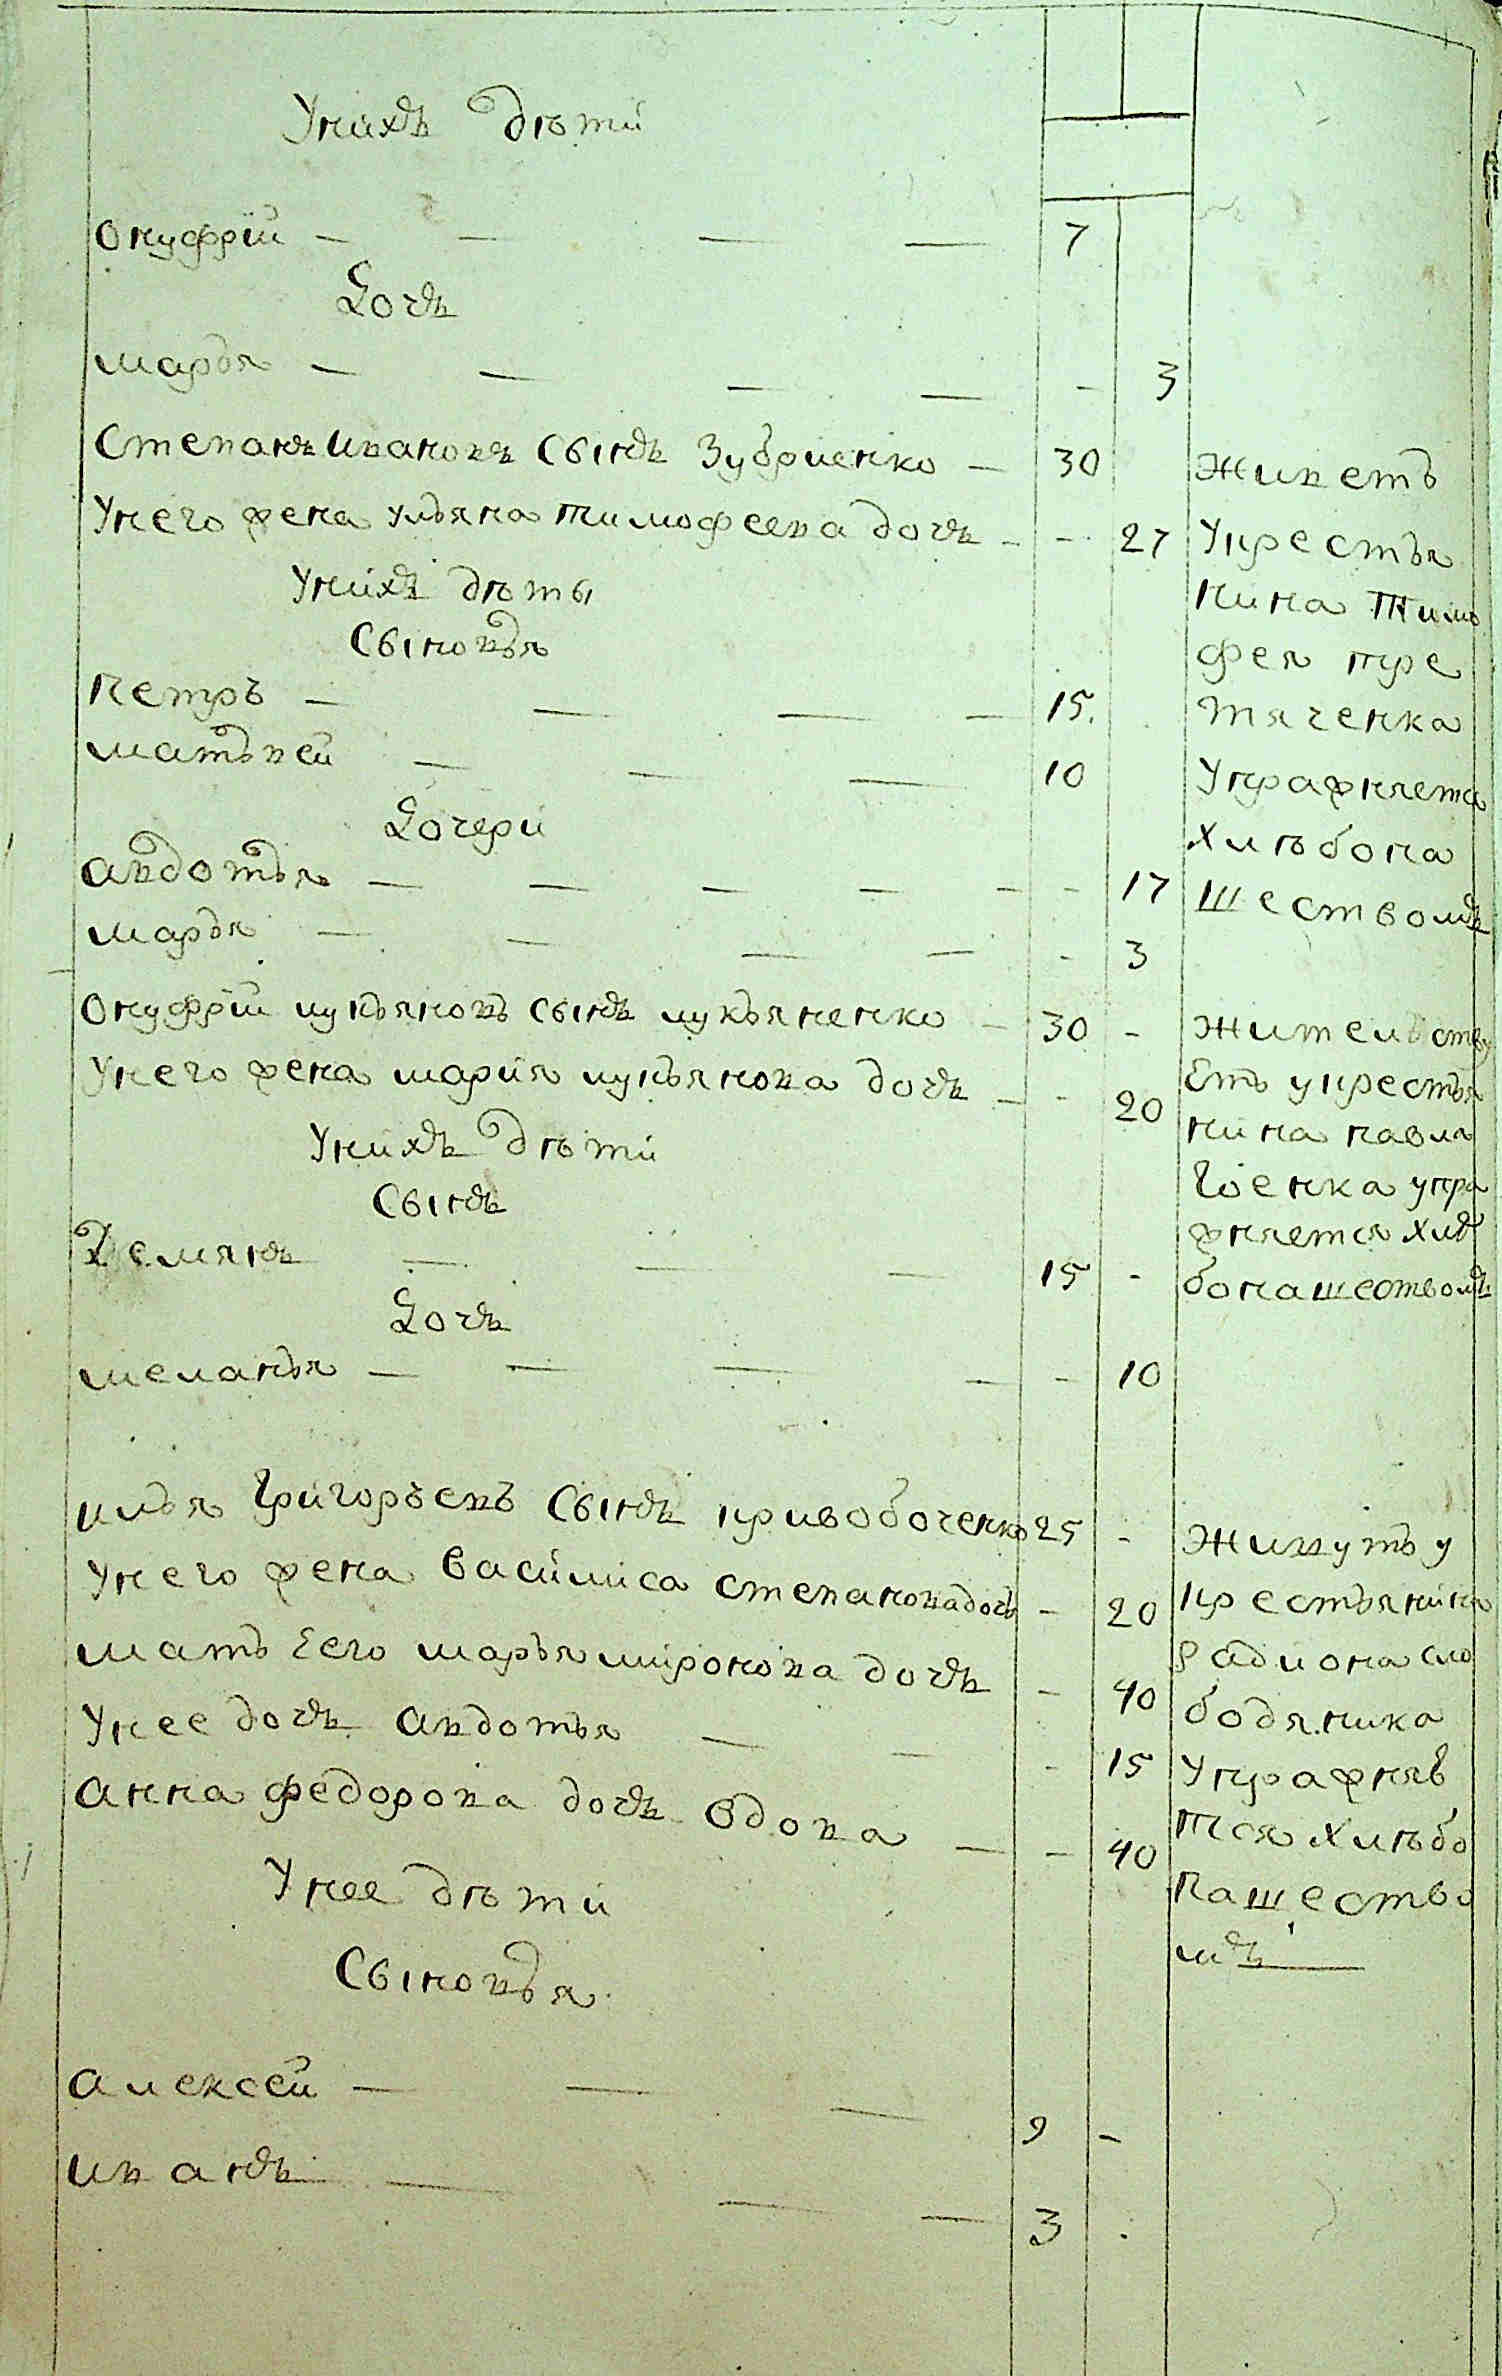 Унихъ дѣти
Онуфрїй — — — — 7
Дочь
марья — — — — - 3
Степанъ Ивановъ сынъ Зубриенко — 30
Унего жена ульяна тимофеева дочь - - 27
Унихъ дѣты
Сыновья
петръ — — — — 15.
матьвей — — — 10
Дочери
авдотья — — — — - - 17
марья — — — — - 3
Онуфрїй лукьяновъ сынъ лукьяненко - 30 -
Унего жена мария лукьянова дочь - - 20
Унихъ дѣти
Сынъ
Демянъ — — — 15 -
Дочь
меланья — — — — - 10
илья Григорьевъ сынъ кривобоченко 25 -
Унего жена василиса степановадочь - 20
мать Его марья миронова дочь - 40
Унее дочь авдотья — — - 15
анна федорова дочь вдова — - 40
Унее дѣти
Сыновья
алексей — — — 9 -
иванъ — — — 3 .
живетъ
укрестья
нина тимо
фея кре
тяченка
упражняетъся
хлѣбопа
шествомъ
жительству
Етъ укрестья
нина павла
упра
жняется хлѣ
бопашествомъ
живутъ у
крестьянина
радиона сло
бодяника
упражняю
тся хлѣбо
пашество
мъ